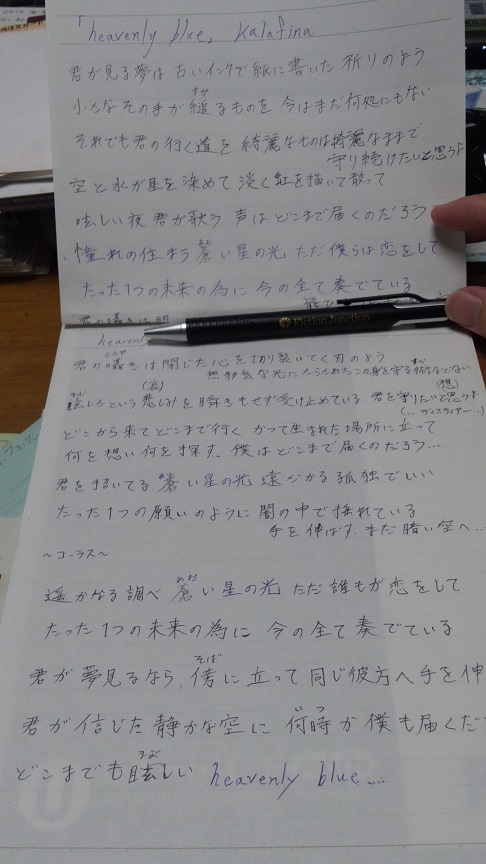 「heavenly blue」 Kalafina
君が見る夢は 古いインクで紙に書いた 祈りのよう
小さなその手が縋るものを 今はまだ何処にもない
すが
それでも君の行く道を 綺麗なものは綺麗なままで
守り続けたいと思うよ
空と水が星を染めて 淡く虹を描いて散って
眩しい夜 君が歌う 声は どこまで届くのだろう
憧れの住まう 蒼い星の光 ただ僕らは恋をして
たった1つの未来の為に 今の全て奏でている
heavenly
Fiction Junction
君の囁きは閉じた心を切り裂いてく刃のよう
無邪気な光に この身を守る術などない
(哀) (想)
眩しさという悲しみを瞬きもせず受け止めている 君を守りたいと思うよ
どこから来てどこまで行く かつて生まれた場所に立って
何を想い何を探す、僕はどこまで届くのだろう…
君を招いてる 蒼い星の光 遠ざかる孤独でいい
たった1つの願いのように 闇の中で揺れている
手を伸ばす、まだ暗い空へ…
～コーラス～
遥かなる調べ 蒼い星の光 ただ誰もが恋をして
あお
たった1つの未来の為に 今の全て奏でている
そば
君が夢見るなら、傍に立って同じ彼方へ手を伸
いつ
君が信じた静かな空に 何時か僕も届くだ
どこまでも眩しい heavenly blue…